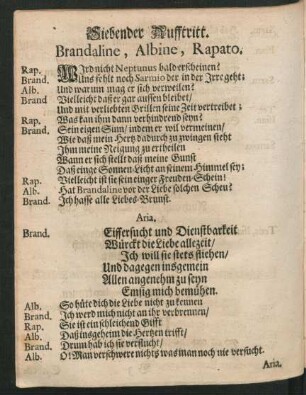 Siebender Aufftritt.
Brandaline, Albine, Rapato.
Rap. Wird nicht Neptunus bald erscheinen?
Brand. Uns fehlt noch Sarmio der in der Irre geht;
Alb. Und warum mag er sich verweilen?
Brand Vielleicht daß er gar aussen bleibet/
Und mit verliebten Grillen seine Zeit vertreibet;
Rap. Was kan ihm dann verhindrend seyn?
Brand. Sein eigen Sinn/ indem er wil vermeinen/
Wie daß mein Hertz dadurch zu zwingen steht
Ihm meine Neigung zu ertheilen
Wann er sich stellt daß meine Gunst
Daß einge Sonnen-Licht an seinem Himmel sey;
Rap. Vielleicht ist sie sein einger Freuden-Schein!
Alb. Hat Brandaline vor der Liebe solchen Scheu?
Brand. Ich hasse alle Liebes-Brunst.
Aria.
Brand. Eiffersucht und Dienstbarkeit
Würckt die Liebe allezeit/
Ich will sie stets fliehen/
Und dagegen insgemein
Allen angenehm zu seyn
Embsig mich bemühen.
Alb. So hüte dich die Liebe nicht zu kennen
Brand. Ich werd mich nicht an ihr verbrennen/
Rap. Sie ist ein schleichend Gifft
Alb. Daß insgeheim die Hertzen trifft/
Brand. Drum hab ich sie verflucht/
Alb. O! Man verschwere nichts was man noch nie versucht.
Aria.